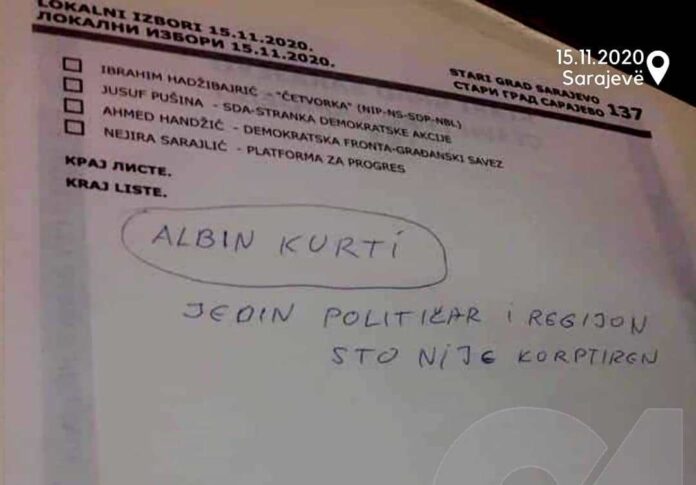 LOKALNI IZBORI 15.11.2020.
ЛОКАЛНИ ИЗБОРИ 15.11.2020.
15.11.2020
Sarajevë
STARI GRAD SARAJEVO
СТАРИ ГРАД САРАЈЕВО 137
IBRAHIM HADŽIBAJRIĆ - "ČETVORKA" (NIP-NS-SDP-NBL)
JUSUF PUŠINA - SDA-STRANKA DEMOKRATSKE AKCIJE
AHMED HANDŽIĆ - DEMOKRATSKA FRONTA-GRAĐANSKI SAVEZ
NEJIRA SARAJLIĆ - PLATFORMA ZA PROGRES
КРАЈ ЛИСТЕ.
KRAJ LISTE.
ALBIN KURTI
JEDIN POLITIČAR I REGIJON
STO NIJE KORPTIREN